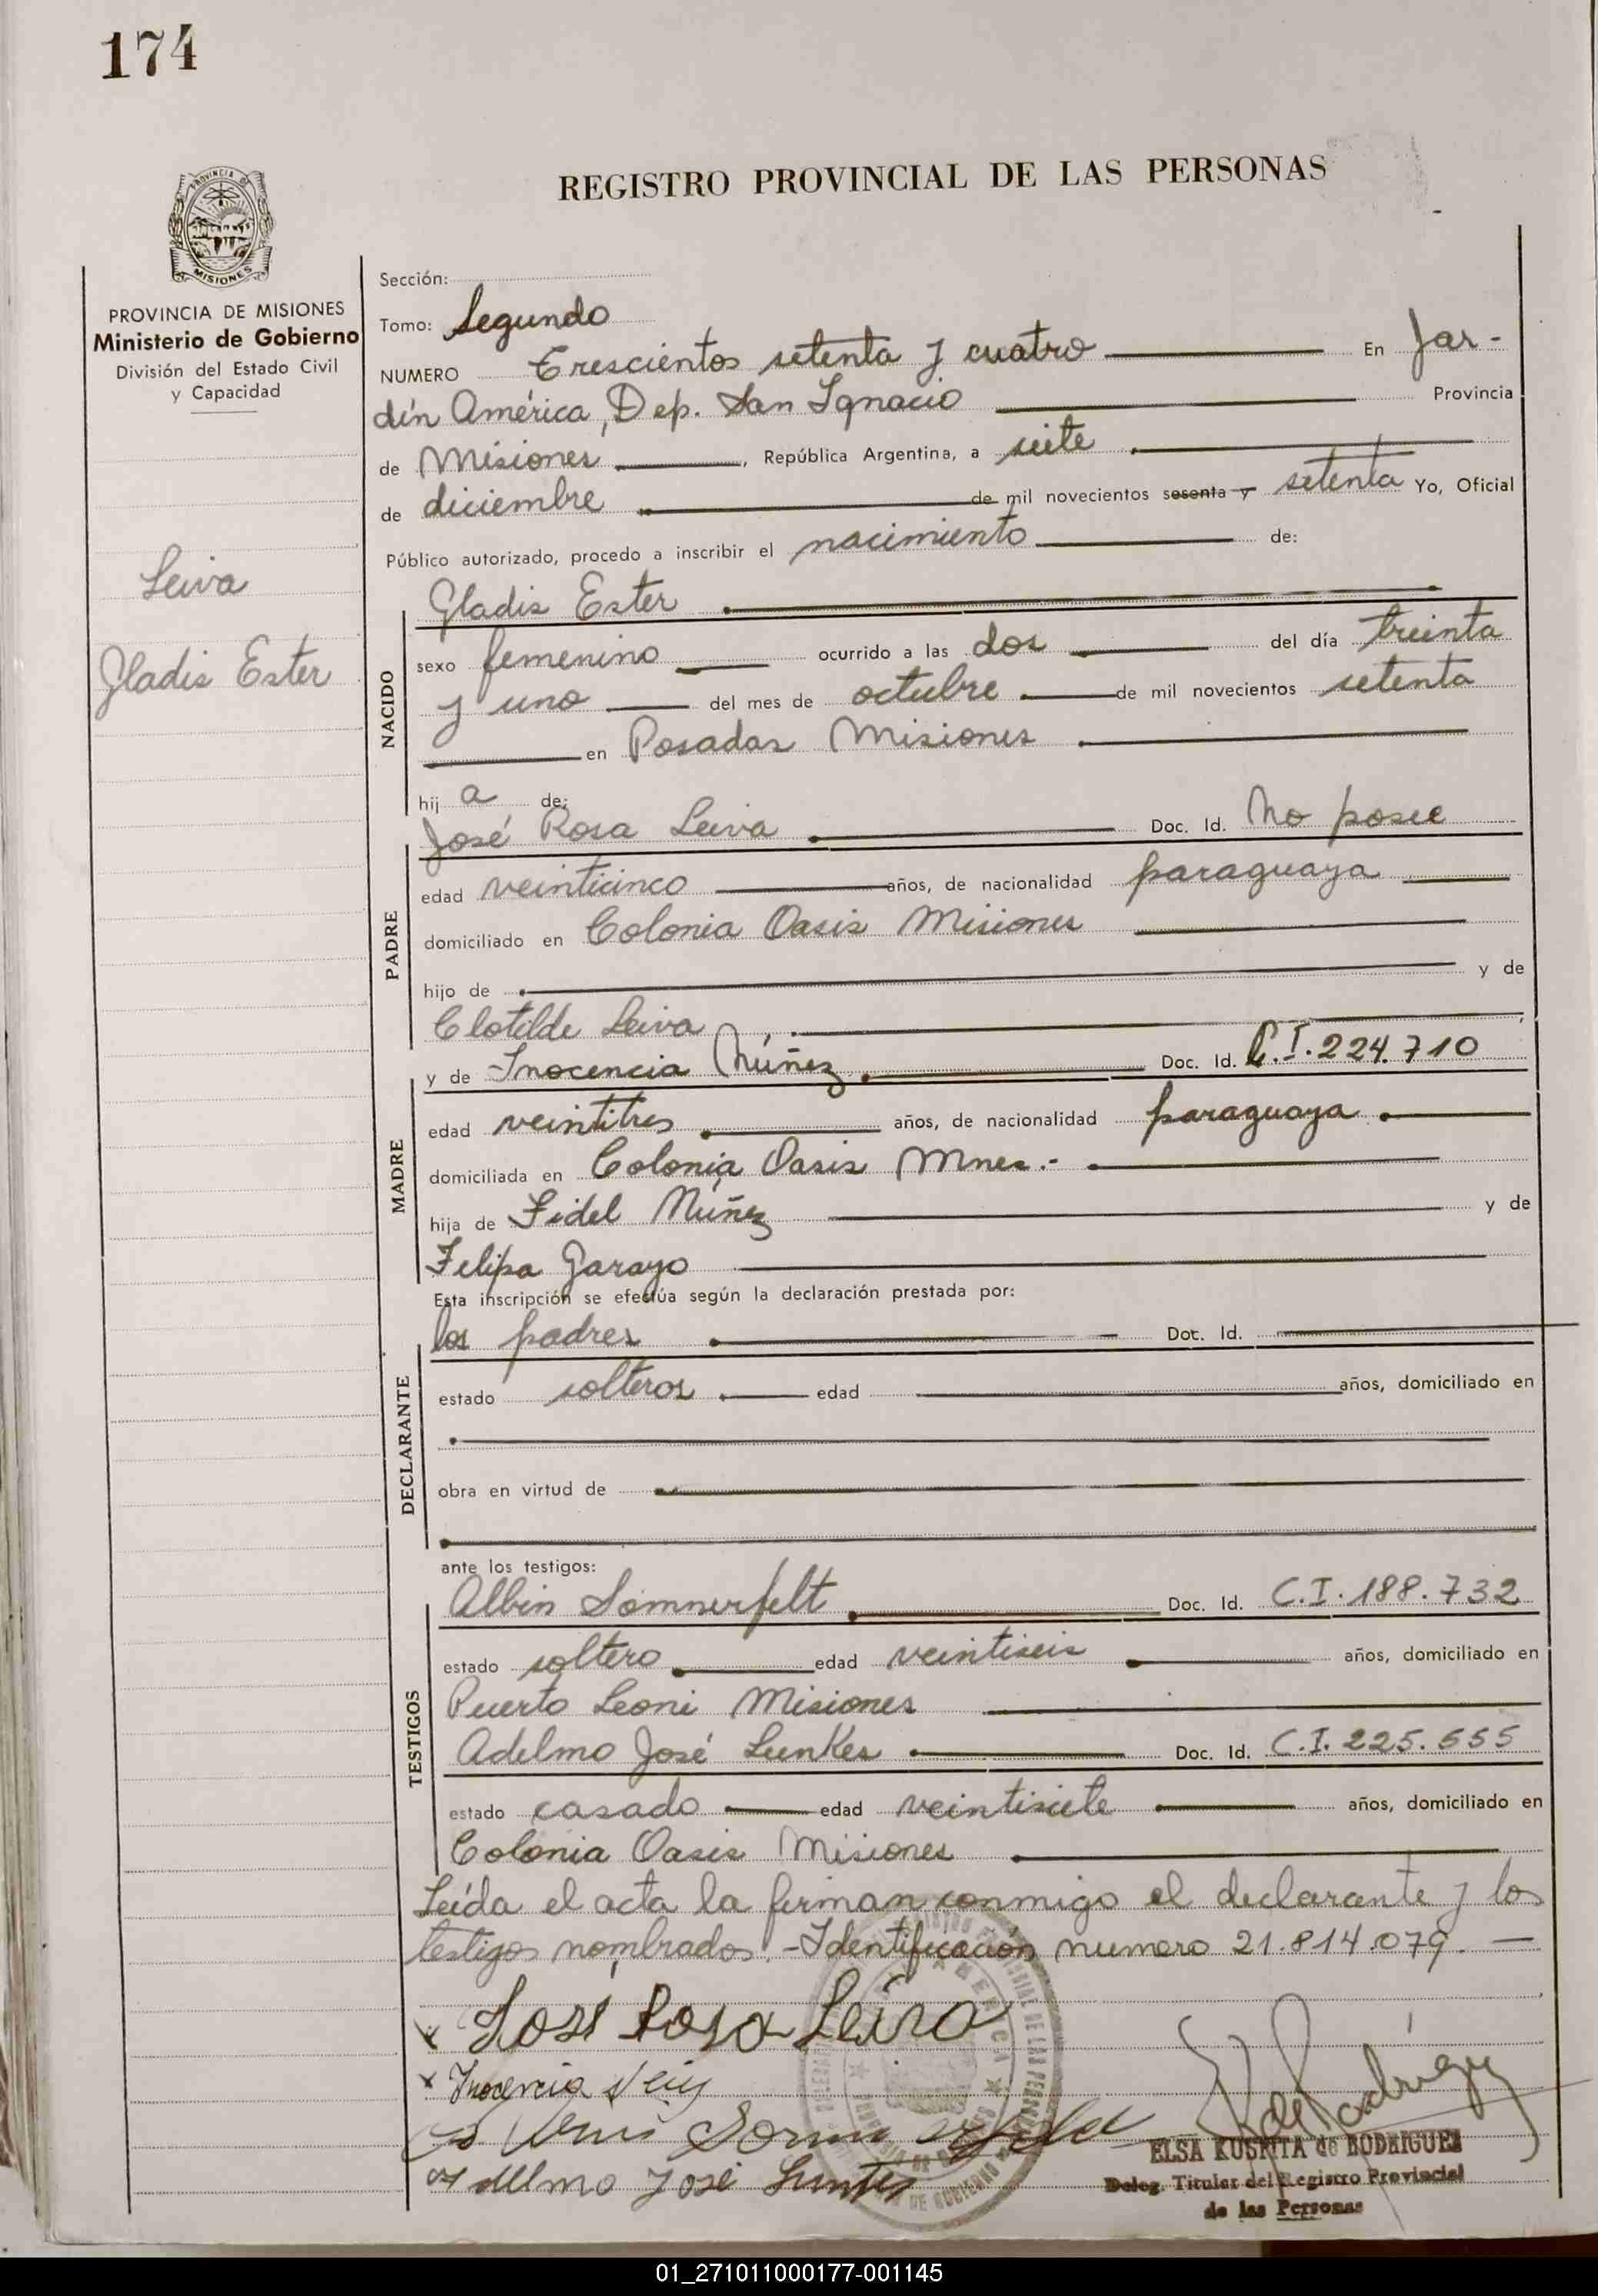 174
REGISTRO PROVINCIAL DE LAS PERSONAS
PROVINCIA DE
MISIONES
PROVINCIA DE MISIONES
Ministerio de Gobierno
División del Estado Civil
y Capacidad
Leiva
Gladis Ester
Sección:
Tomo: Segundo
NUMERO Trescientos setenta y cuatro En Jar-
dín América, Dep. San Ignacio Provincia
de Misiones, República Argentina, a siete
de diciembre de mil novecientos sesenta y setenta Yo, Oficial
Público autorizado, procedo a inscribir el nacimiento de:
Gladis Ester
NACIDO
sexo femenino ocurrido a las dos del día treinta
y uno del mes de octubre de mil novecientos setenta
en Posadas Misiones
hij a de:
José Rosa Leiva Doc. Id. No posee
PADRE
edad veinticinco años, de nacionalidad paraguaya
domiciliado en Colonia Oasis Misiones
hijo de y de
Clotilde Leiva
y de Inocencia Núñez Doc. Id. C.I. 224.710
MADRE
edad veintitres años, de nacionalidad paraguaya
domiciliada en Colonia Oasis Mnes.-
hija de Fidel Núñez y de
Felipa Garayo
Esta inscripción se efectúa según la declaración prestada por:
los padres Doc. Id.
DECLARANTE
estado solteros edad años, domiciliado en
obra en virtud de
ante los testigos:
Albin Sommerfelt Doc. Id. C.I. 188.732
TESTIGOS
estado soltero edad veintiseis años, domiciliado en
Puerto Leoni Misiones
Adelmo José Lunkes Doc. Id. C.I. 225.655
estado casado edad veintisiete años, domiciliado en
Colonia Oasis Misiones
Leída el acta la firman conmigo el declarante y los
testigos nombrados.-Identificación numero 21.814.079.
x José Rosa Leiva
x Inocencia
Adelmo José Lunkes
ELSA KUSNITA de RODRIGUEZ
Deleg. Titular del Registro Provincial
de las Personas
01_271011000177-001145